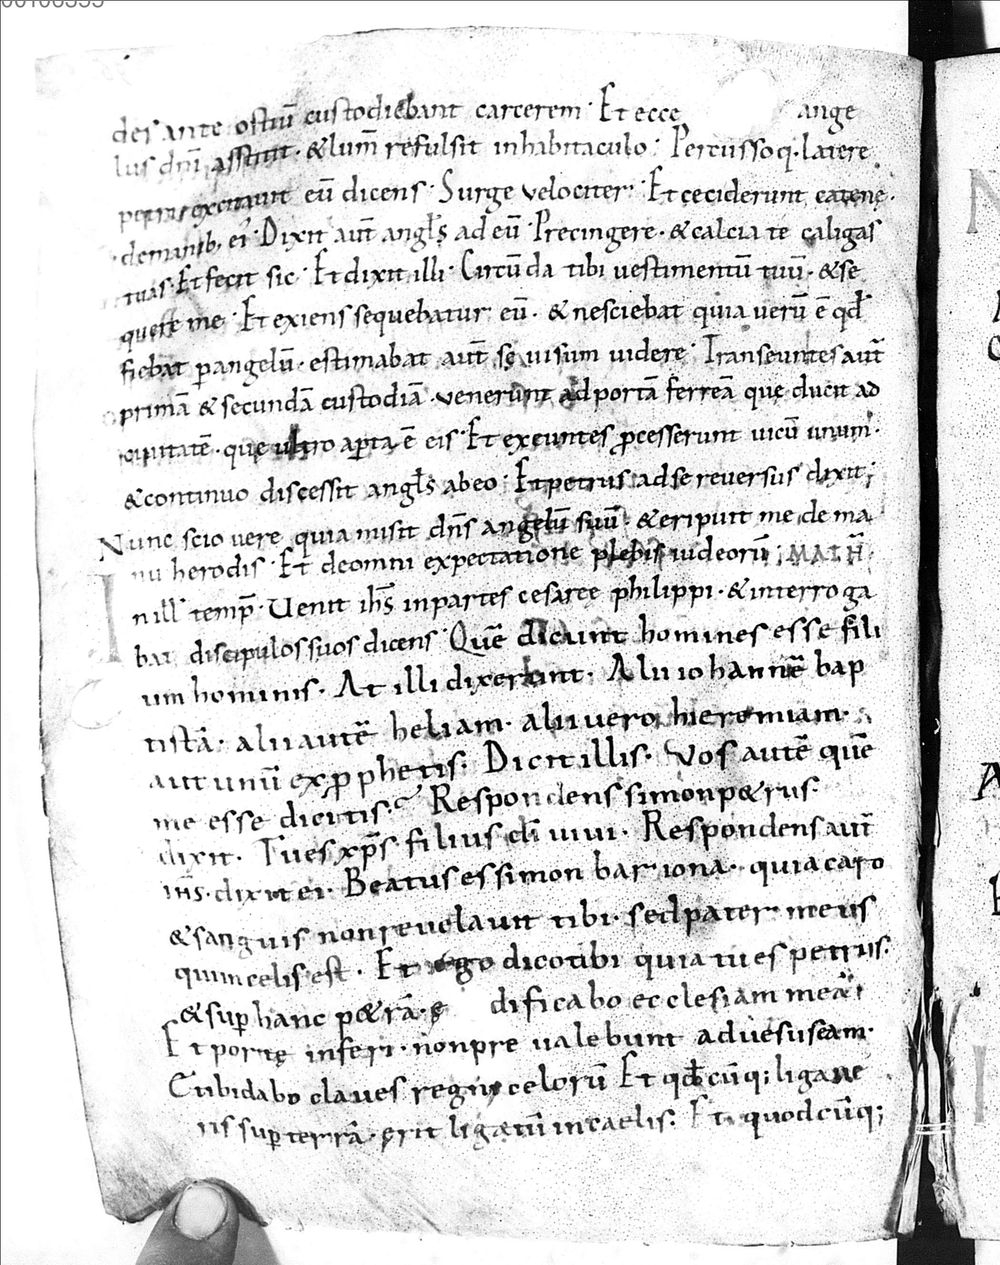 00106355
des ante ostiū custodiebant carcerem · Et ecce ange
lus dn̄i asstitit · &lum̄ refulsit inhabitaculo · Percussoq· latere
petri excitavit eū dicens · Surge velociter · Et ceciderunt catenę ·
demanib; ei' Dixit aut̄ angl̄s ad eū · Precingere · &calcia te caligas
tuas · Et fecit sic · Et dixit illi · Circūda tibi uestimentū tuū · &se
quere me · Et exiens sequebatur eū · & nesciebat quia uerū ē qd̄
fiebat p̄ angelū · estimabat aut̄ sę uisum uidere · Transeuntes aut̄
primā & secundā custodiā · venerunt ad portā ferreā quę ducit ad
ciuitatē · quę ultro ap̄ta ē eis · Et exeuntes p̄cesserunt uicū unum ·
&continuo discessit angl̄s abeo · Et petrus adse reversus dixit ;
Nunc scio uere quia misit dn̄s angelū suū · &eripuit me de ma
nu herodis · Et deomni expectatione plebis iudeorū ; MATH̄
In ill' temp̄ · Uenit ih̄s inpartes cesaree philippi · &interroga
bat discipulos suos dicens · Quē dicunt homines esse fili
um hominis · At illi dixerunt · Alii iohannē bap
tistā · alii autē heliam · alii vero hieremiam ·
aut unū ex p̄phetis · Dicit illis · Vos autē quē
me esse dicitis · Respondens simon p&rus ·
dixit · Tu es xp̄s filius dī uiui · Respondens aut̄
ih̄s · dixit ei · Beatus es simon bar iona · quia caro
&sanguis non reuelauit tibi · sed pater meus
qui in celis est · Et ego dico tibi quia tu es petrus ·
&sup̄ hanc p&rā · ę dificabo ecclesiam meā ·
Et portę inferi · non pre ualebunt aduesus eam ·
Et tibi dabo claues regni celorū Et qd̄cūq; ligaue
ris sup̄ terrā · erit ligatū in caelis · Et quodcūq;